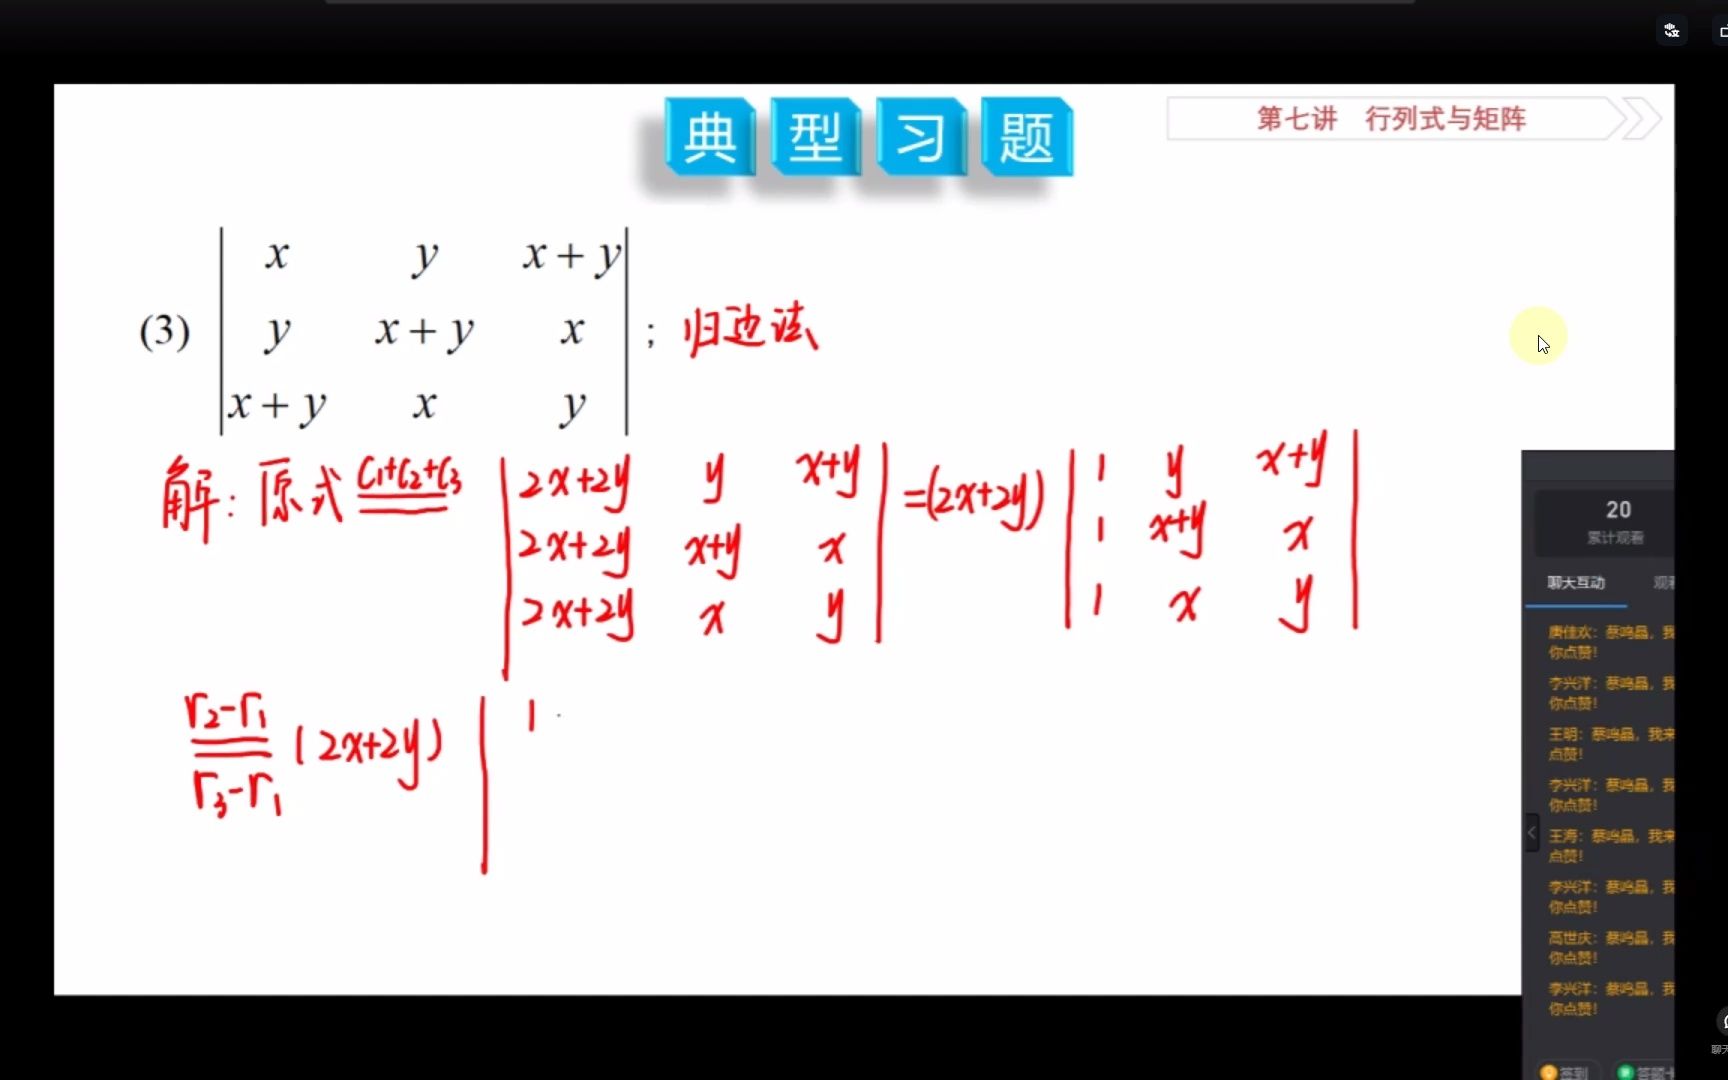 典型习题
第七讲 行列式与矩阵
x y x + y
(3) y x + y x ; 归边法
x + y x y
解: 原式 C₁+C₂+C₃ 2x+2y y x+y =(2x+2y) 1 y x+y
2x+2y x+y x 1 x+y x
2x+2y x y 1 x y
r₂-r₁
(2x+2y) 1
r₃-r₁
20
累计观看
聊天互动
唐佳欢: 蔡鸣晶, 我
你点赞!
李兴洋: 蔡鸣晶, 我
你点赞!
王明: 蔡鸣晶, 我来
点赞!
李兴洋: 蔡鸣晶, 我
你点赞!
王海: 蔡鸣晶, 我来
点赞!
李兴洋: 蔡鸣晶, 我
你点赞!
高世庆: 蔡鸣晶, 我
你点赞!
李兴洋: 蔡鸣晶, 我
你点赞!
签到 答题卡